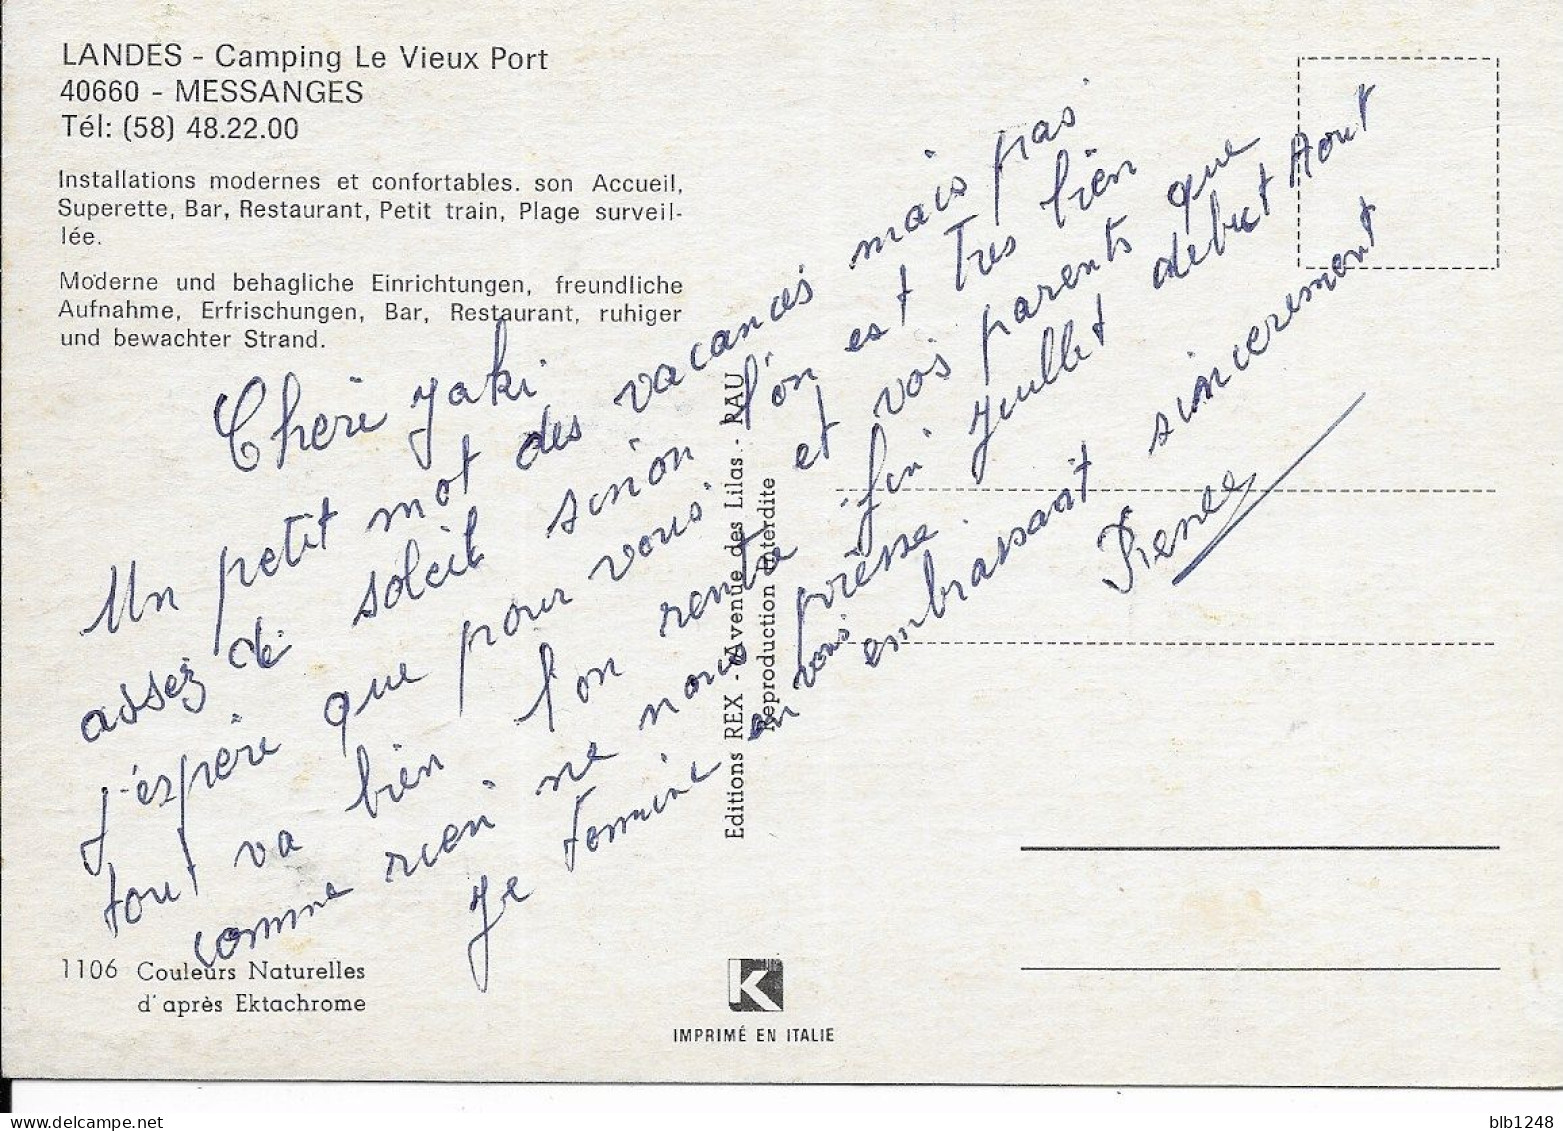 LANDES - Camping Le Vieux Port
40660 - MESSANGES
Tél: (58) 48.22.00
Installations modernes et confortables. son Accueil,
Superette, Bar, Restaurant, Petit train, Plage surveil-
lée.
Moderne und behagliche Einrichtungen, freundliche
Aufnahme, Erfrischungen, Bar, Restaurant, ruhiger
und bewachter Strand.
Cheri Jaki
Un petit mot des vacances mais pas
assez de soleil sinion l'on est tres bien
j'espere que pour vous et vos parents que
tout va bien l'on rentre fin juillet debut Aout
comme rien ne nous presse.
Je termine en vous embrassant sincerement
Renee
Editions REX - Avenue des Lilas - PAU
Reproduction interdite
1106 Couleurs Naturelles
d'après Ektachrome
K
IMPRIMÉ EN ITALIE
delcampe.net
blb1248